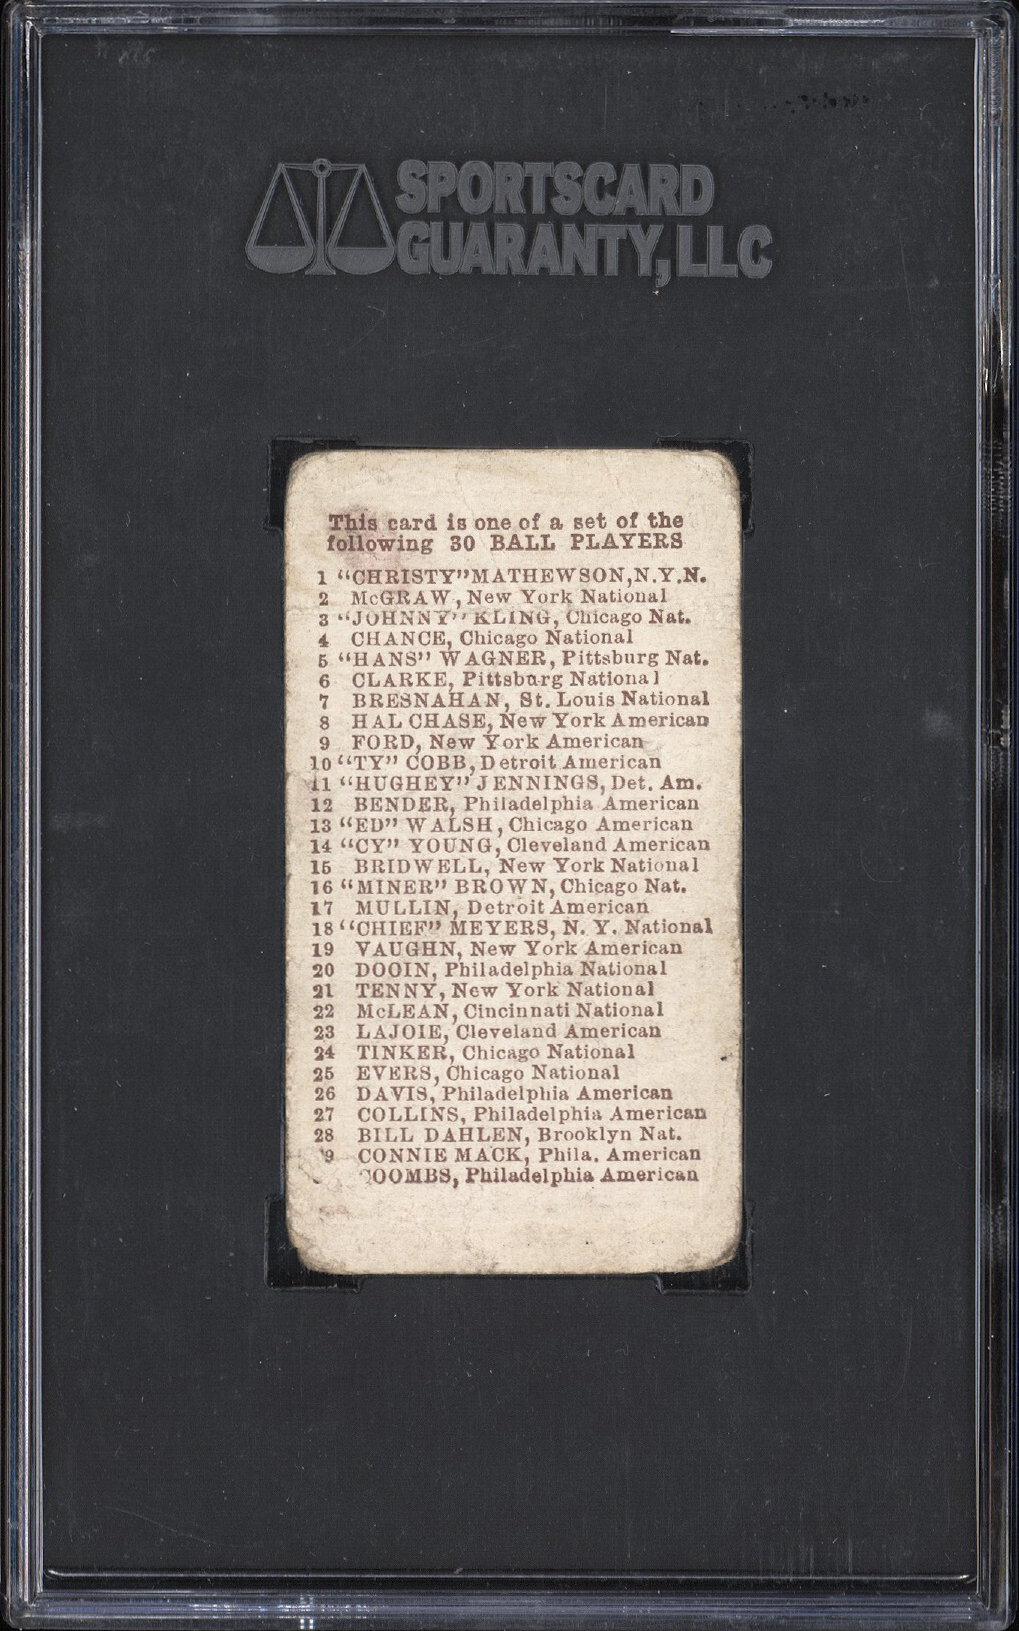 SPORTSCARD
GUARANTY, LLC
This card is one of a set of the
following 30 BALL PLAYERS
1 "CHRISTY" MATHEWSON, N.Y.N.
2 McGRAW, New York National
3 "JOHNNY" KLING, Chicago Nat.
4 CHANCE, Chicago National
5 "HANS" WAGNER, Pittsburg Nat.
6 CLARKE, Pittsburg National
7 BRESNAHAN, St. Louis National
8 HAL CHASE, New York American
9 FORD, New York American
10 "TY" COBB, Detroit American
11 "HUGHEY" JENNINGS, Det. Am.
12 BENDER, Philadelphia American
13 "ED" WALSH, Chicago American
14 "CY" YOUNG, Cleveland American
15 BRIDWELL, New York National
16 "MINER" BROWN, Chicago Nat.
17 MULLIN, Detroit American
18 "CHIEF" MEYERS, N. Y. National
19 VAUGHN, New York American
20 DOOIN, Philadelphia National
21 TENNY, New York National
22 McLEAN, Cincinnati National
23 LAJOIE, Cleveland American
24 TINKER, Chicago National
25 EVERS, Chicago National
26 DAVIS, Philadelphia American
27 COLLINS, Philadelphia American
28 BILL DAHLEN, Brooklyn Nat.
9 CONNIE MACK, Phila. American
COOMBS, Philadelphia American